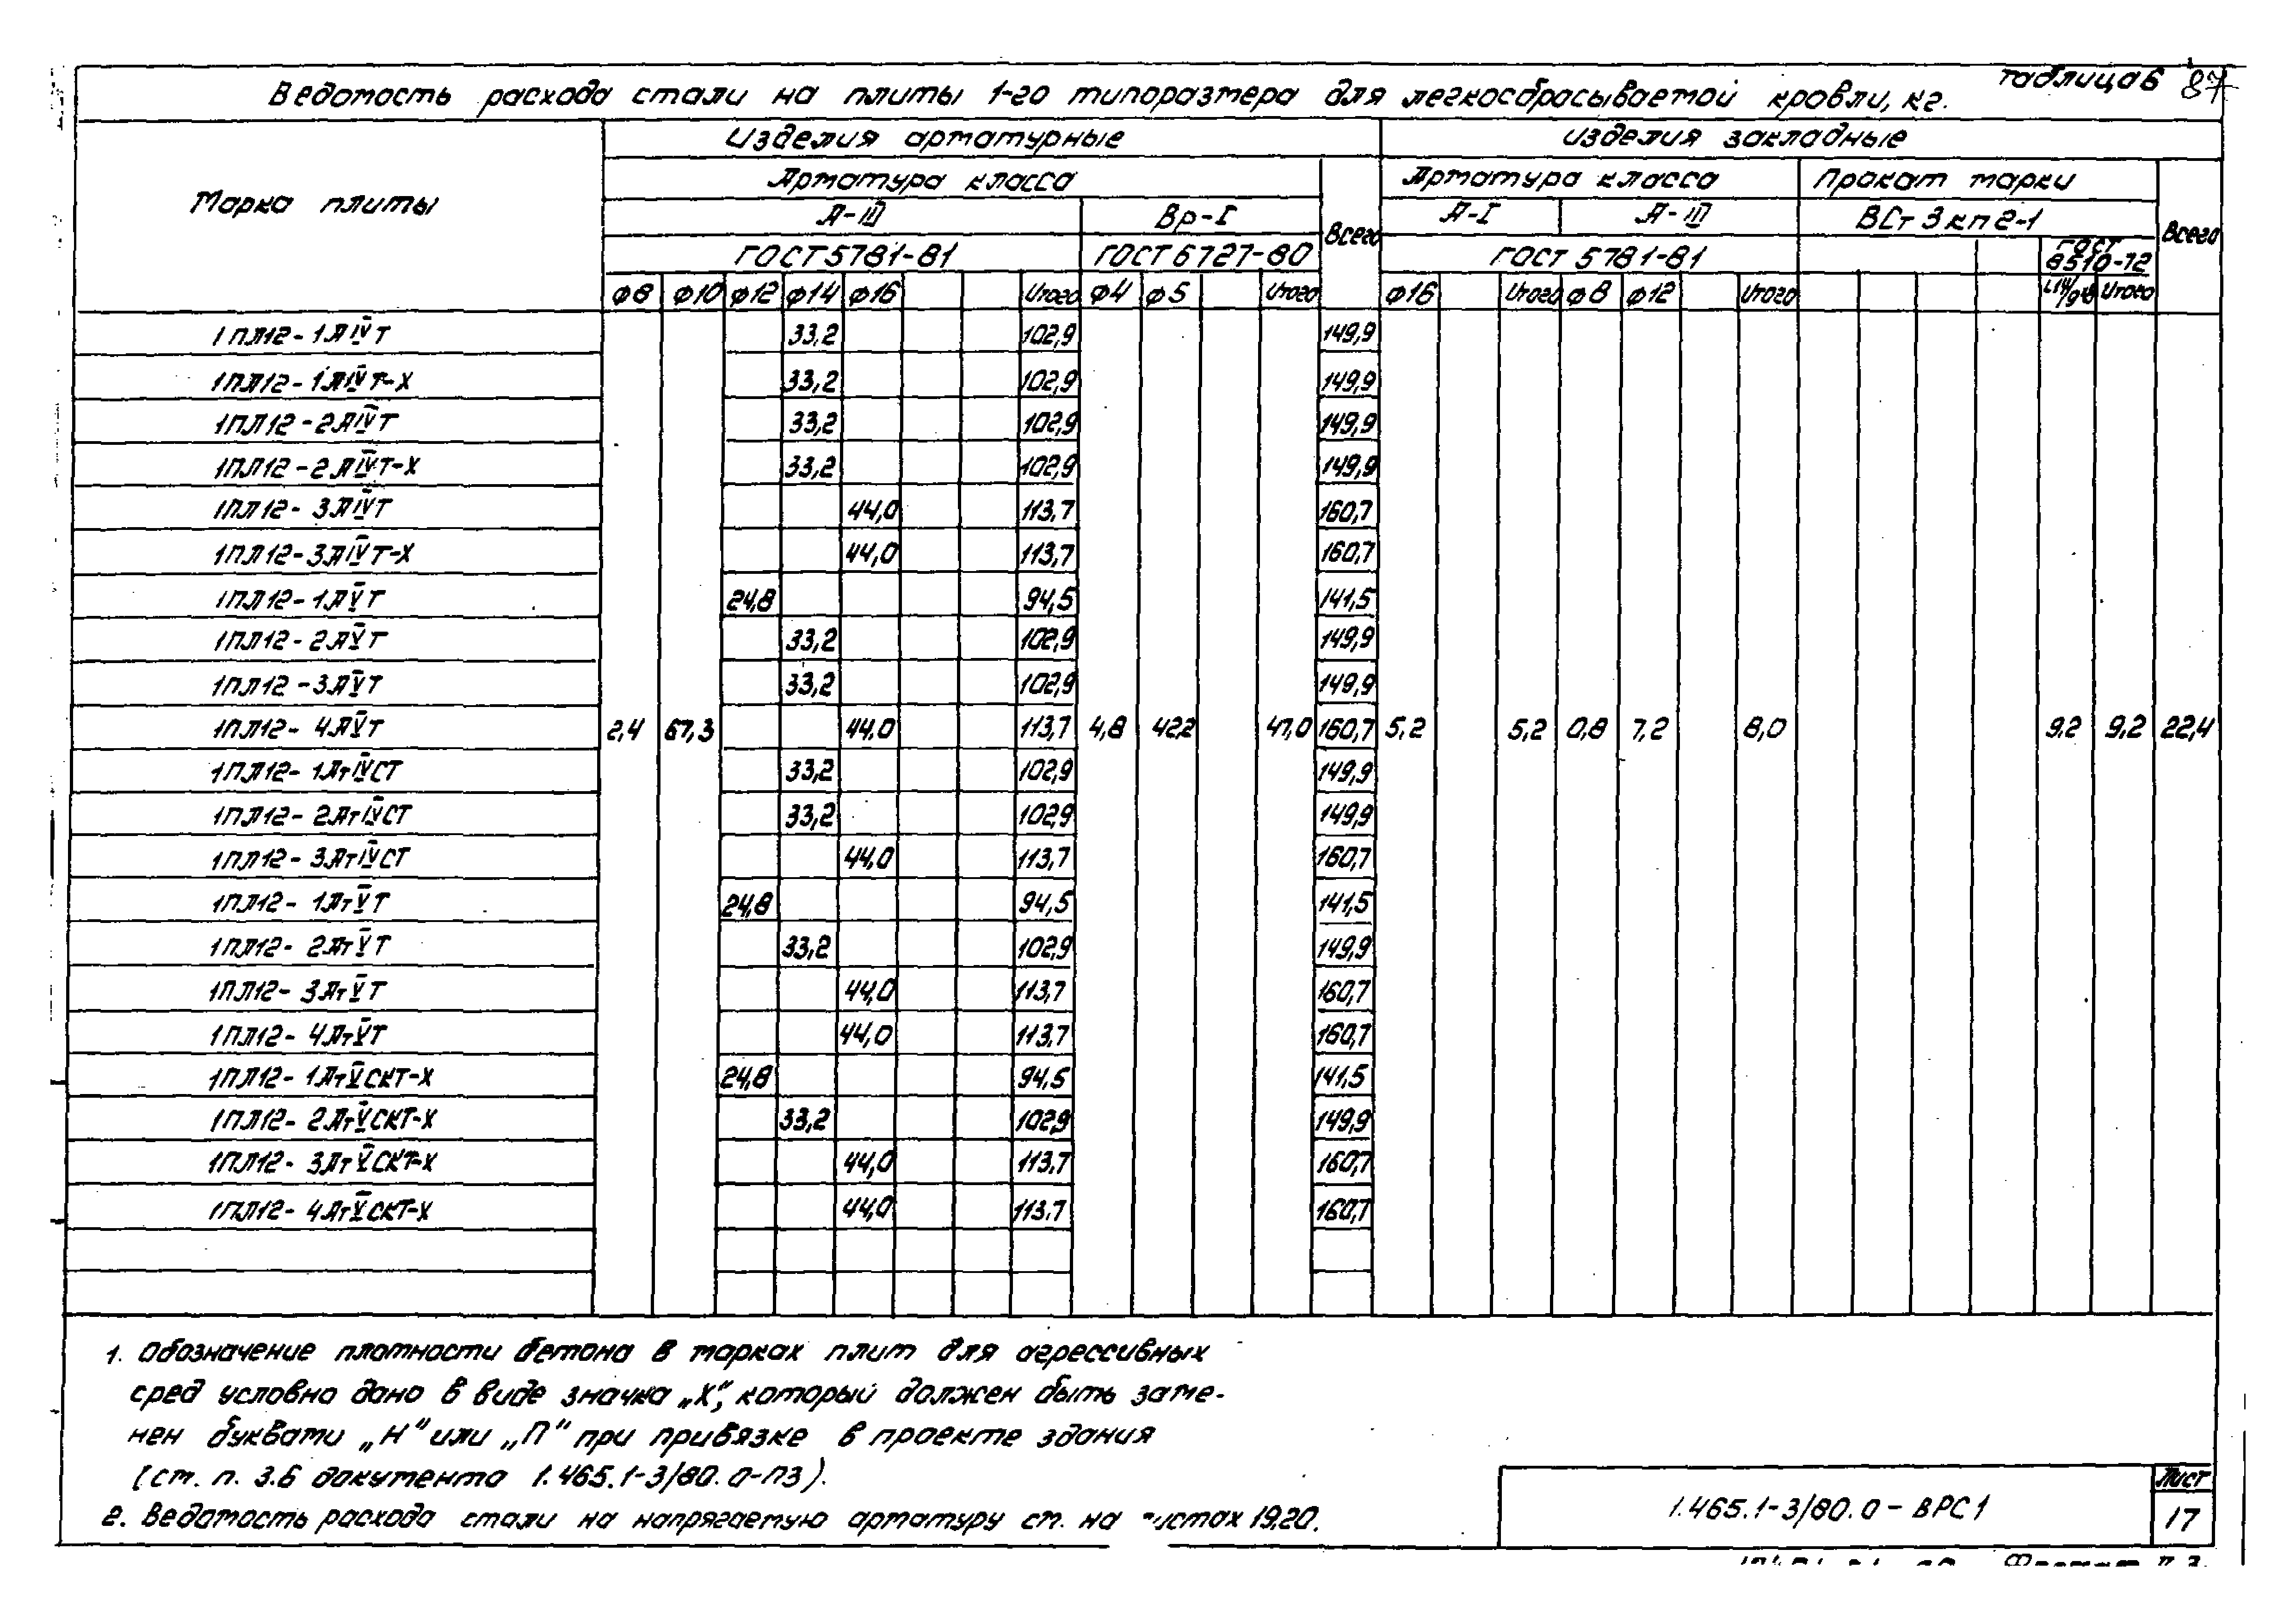 таблица 6 87
Ведомость расхода стали на плиты 1-го типоразмера для легкосбрасываемой кровли, кг.
Марка плиты
Изделия арматурные
Изделия закладные
Арматура класса
Всего
Арматура класса
Прокат марки
Всего
А-III
Вр-I
А-I
А-III
ВСт 3 кп 2-1
ГОСТ 5781-81
ГОСТ 6727-80
ГОСТ 5781-81
ГОСТ 8510-72
ф8 ф10 ф12 ф14 ф16 Итого ф4 ф5 Итого ф16 Итого ф8 ф12 Итого Итого
1ПЛ12-1АIVТ 33,2 102,9 149,9
1ПЛ12-1АIVТ-Х 33,2 102,9 149,9
1ПЛ12-2АIVТ 33,2 102,9 149,9
1ПЛ12-2АIVТ-Х 33,2 102,9 149,9
1ПЛ12-3АIVТ 44,0 113,7 160,7
1ПЛ12-3АIVТ-Х 44,0 113,7 160,7
1ПЛ12-1АVТ 24,8 94,5 141,5
1ПЛ12-2АVТ 33,2 102,9 149,9
1ПЛ12-3АVТ 33,2 102,9 149,9
1ПЛ12-4АVТ 2,4 67,3 44,0 113,7 4,8 42,2 47,0 160,7 5,2 5,2 0,8 7,2 8,0 9,2 9,2 22,4
1ПЛ12-1АтIVСТ 33,2 102,9 149,9
1ПЛ12-2АтIVСТ 33,2 102,9 149,9
1ПЛ12-3АтIVСТ 44,0 113,7 160,7
1ПЛ12-1АтVТ 24,8 94,5 141,5
1ПЛ12-2АтVТ 33,2 102,9 149,9
1ПЛ12-3АтVТ 44,0 113,7 160,7
1ПЛ12-4АтVТ 44,0 113,7 160,7
1ПЛ12-1АтVСКТ-Х 24,8 94,5 141,5
1ПЛ12-2АтVСКТ-Х 33,2 102,9 149,9
1ПЛ12-3АтVСКТ-Х 44,0 113,7 160,7
1ПЛ12-4АтVСКТ-Х 44,0 113,7 160,7
1. Обозначение плотности бетона в марках плит для агрессивных
сред условно дано в виде значка „Х", который должен быть заме-
нен буквами „Н" или „П" при привязке в проекте здания
(см. п. 3.6 документа 1.465.1-3/80.0-ПЗ).
2. Ведомость расхода стали на напрягаемую арматуру см. на листах 19,20.
1.465.1-3/80.0-ВРС1
Лист
17